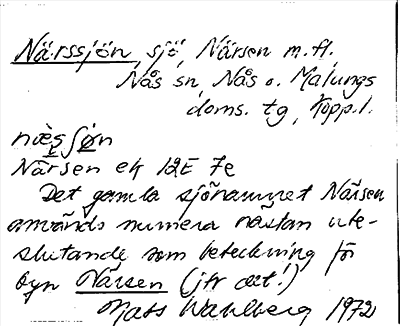 Närssjön, sjö, Närsen m.fl.
Nås sn, Nås o. Malungs
doms. tg, Kopp.l.
næsʃøn
Närsen ek 12E 7e
Det gamla sjönamnet Närsen
används numera nästan ute-
slutande som beteckning för
byn Närsen (jfr det!)
Mats Wahlberg 1972